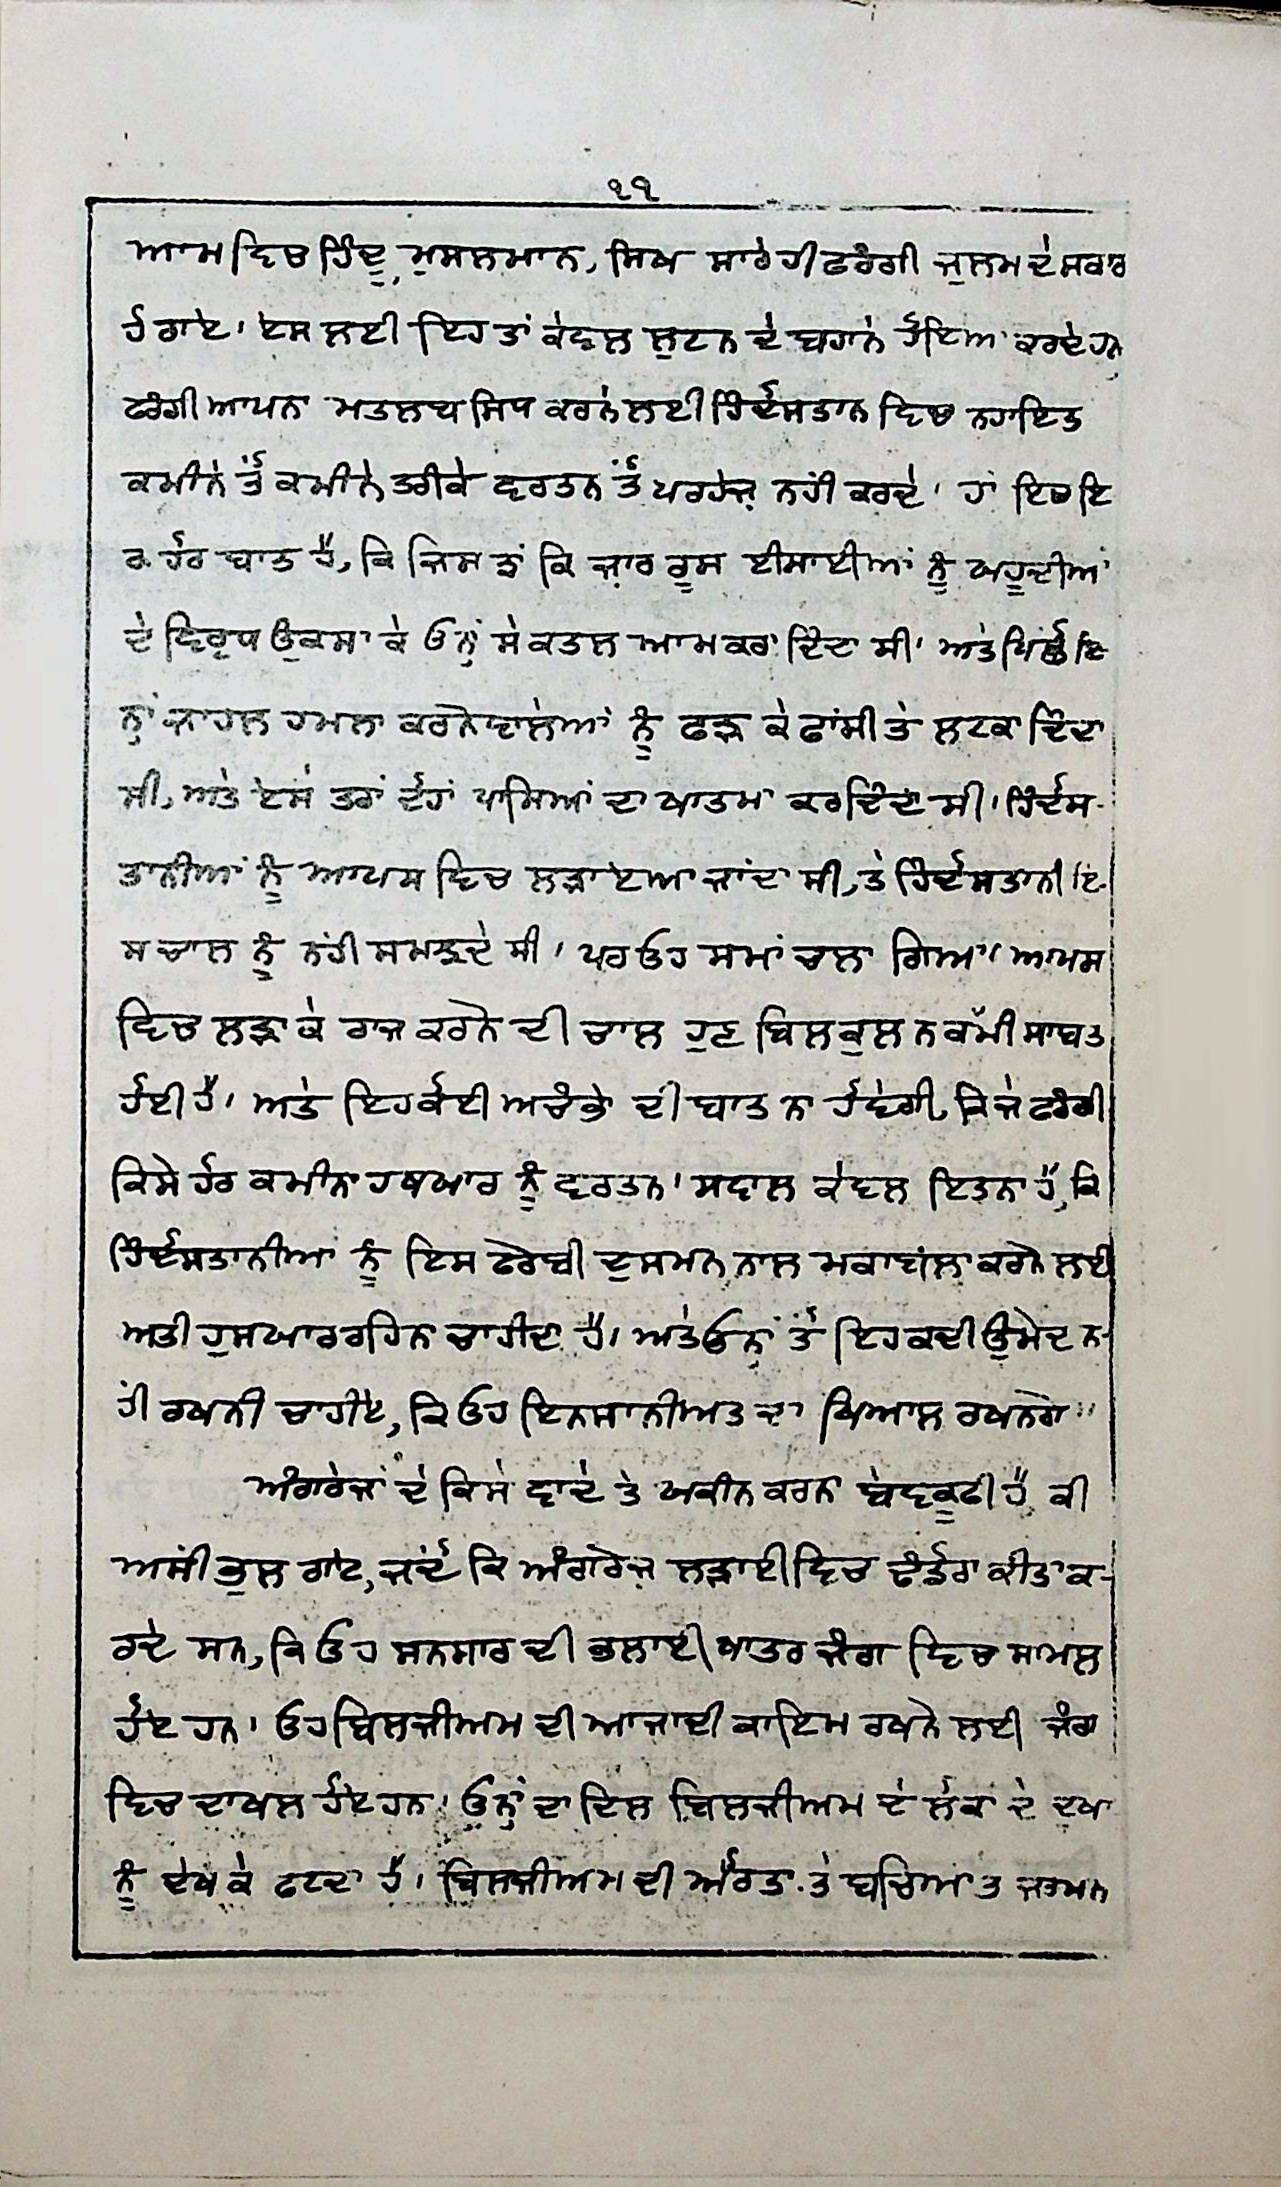 ੧੧
ਆਮ ਵਿਚ ਹਿੰਦੂ, ਮੁਸਲਮਾਨ, ਸਿਖ ਸਾਰੇ ਹੀ ਫਰੰਗੀ ਜੁਲਮ ਦੇ ਸਕਾਰ
ਹੋ ਗਏ। ਏਸ ਲਈ ਇਹ ਤਾਂ ਕੇਵਲ ਲੁਟਨ ਦੇ ਬਹਾਨੇ ਹੋਇਆ ਕਰਦੇ ਹਨ
ਫਰੰਗੀ ਆਪਨਾ ਮਤਲਬ ਸਿਧ ਕਰਨੇ ਲਈ ਹਿੰਦੋਸਤਾਨ ਵਿਚ ਨਹਾਇਤ
ਕਮੀਨੇ ਤੋਂ ਕਮੀਨੇ ਤਰੀਕੇ ਵਰਤਨ ਤੋਂ ਪਰਹੇਜ਼ ਨਹੀਂ ਕਰਦੇ। ਹਾਂ ਇਹ ਇ
ਕ ਹੋਰ ਬਾਤ ਹੈ, ਕਿ ਜਿਸ ਤ੍ਰਾਂ ਕਿ ਜ਼ਾਰ ਰੂਸ ਈਸਾਈਆਂ ਨੂੰ ਯਹੂਦੀਆਂ
ਦੇ ਵਿਰੁਧ ਉਕਸਾ ਕੇ ਓਨ੍ਹਾਂ ਸੇ ਕਤਲ ਆਮ ਕਰਾ ਦਿੰਦਾ ਸੀ। ਅਤੇ ਪਿਛੋਂ ਇ
ਨ੍ਹਾਂ ਜਾਹਲ ਹਮਲਾ ਕਰਨੇ ਵਾਲੇਆਂ ਨੂੰ ਫੜ ਕੇ ਫਾਂਸੀ ਤੇ ਲਟਕਾ ਦਿੰਦਾ
ਸੀ, ਅਤੇ ਏਸੇ ਤਰਾਂ ਦੋਹਾਂ ਪਾਸਿਆਂ ਦਾ ਖਾਤਮਾ ਕਰ ਦਿੰਦਾ ਸੀ। ਹਿੰਦੋਸ-
ਤਾਨੀਆਂ ਨੂੰ ਆਪਸ ਵਿਚ ਲੜਾਇਆ ਜਾਂਦਾ ਸੀ, ਤੇ ਹਿੰਦੋਸਤਾਨੀ ਇ-
ਸ ਚਾਲ ਨੂੰ ਨਹੀਂ ਸਮਝਦੇ ਸੀ। ਪਰ ਓਹ ਸਮਾਂ ਚਲਾ ਗਿਆ। ਆਪਸ
ਵਿਚ ਲੜਾ ਕੇ ਰਾਜ ਕਰਨੇ ਦੀ ਚਾਲ ਹੁਣ ਬਿਲਕੁਲ ਨਕੰਮੀ ਸਾਬਤ
ਹੋਈ ਹੈ। ਅਤੇ ਇਹ ਕੋਈ ਅਚੰਭੇ ਦੀ ਬਾਤ ਨਾ ਹੋਵੇਗੀ, ਕਿ ਜੇ ਫਰੰਗੀ
ਕਿਸੇ ਹੋਰ ਕਮੀਨਾ ਹਥਯਾਰ ਨੂੰ ਵਰਤਨ। ਸਵਾਲ ਕੇਵਲ ਇਤਨਾ ਹੈ, ਕਿ
ਹਿੰਦੋਸਤਾਨੀਆਂ ਨੂੰ ਇਸ ਫਰੇਬੀ ਦੁਸਮਨ ਨਾਲ ਮਕਾਬਲਾ ਕਰਨੇ ਲਈ
ਅਤੀ ਹੁਸਯਾਰ ਰਹਿਨਾ ਚਾਹੀਦਾ ਹੈ। ਅਤੇ ਓਨ੍ਹਾਂ ਤੋਂ ਇਹ ਕਦੀ ਉਮੇਦ ਨ-
ਹੀਂ ਰਖਨੀ ਚਾਹੀਏ, ਕਿ ਓਹ ਇਨਸਾਨੀਅਤ ਦਾ ਖਿਆਲ ਰਖਨਗੇ॥
ਅੰਗਰੇਜਾਂ ਦੇ ਕਿਸੇ ਵਾਦੇ ਤੇ ਯਕੀਨ ਕਰਨਾ ਬੇਵਕੂਫੀ ਹੈ, ਕੀ
ਅਸੀਂ ਭੁਲ ਗਏ, ਜਦੋਂ ਕਿ ਅੰਗਰੇਜ਼ ਲੜਾਈ ਵਿਚ ਢੰਡੋਰਾ ਕੀਤਾ ਕ-
ਰਦੇ ਸਨ, ਕਿ ਓਹ ਸਨਸਾਰ ਦੀ ਭਲਾਈ ਖਾਤਰ ਜੰਗ ਵਿਚ ਸਾਮਲ
ਹੋਏ ਹਨ। ਓਹ ਬਿਲਜੀਅਮ ਦੀ ਆਜਾਦੀ ਕਾਇਮ ਰਖਨੇ ਲਈ ਜੰਗ
ਵਿਚ ਦਾਖਲ ਹੋਏ ਹਨ। ਓਨ੍ਹਾਂ ਦਾ ਦਿਲ ਬਿਲਜੀਅਮ ਦੇ ਲੋਕਾਂ ਦੇ ਦੁਖਾਂ
ਨੂੰ ਦੇਖ ਕੇ ਫਟਦਾ ਹੈ। ਬਿਲਜੀਅਮ ਦੀ ਔਰਤਾਂ ਤੇ ਬਚਿਆਂ ਤੇ ਜਰਮਨ